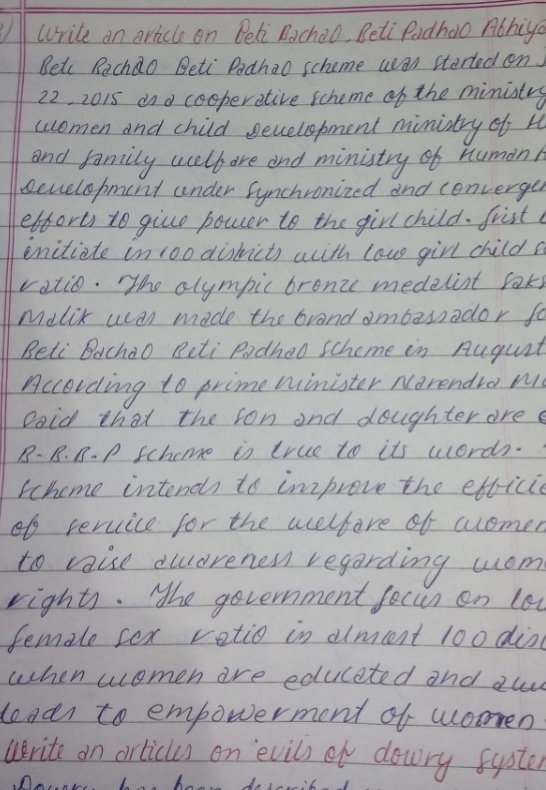 Write an article on Beti Bachao Beti Padhao Abhiya
Beti Bachao Beti Padhao scheme was started on J
22, 2015 as a cooperative scheme of the ministry
women and child Development ministry of H
and family welfare and ministry of Human R
Development under synchronized and converge
efforts to give power to the girl child. frist
initiate in 100 districts with low girl child s
ratio. The olympic bronze medalist saks
Malik was made the brand ambassador fo
Beti Bachao Beti Padhao scheme in August
According to prime Minister Narendra Mo
said that the son and doughter are e
B.B.B.P scheme is true to its words.
scheme intends to improve the efficie
of service for the welfare of women
to raise awareness regarding wom
rights. The government focus on low
female sex ratio in almost 100 dis
when women are educated and awa
leads to empowerment of women
Write an articles on evils of dowry system
Dowry has been described